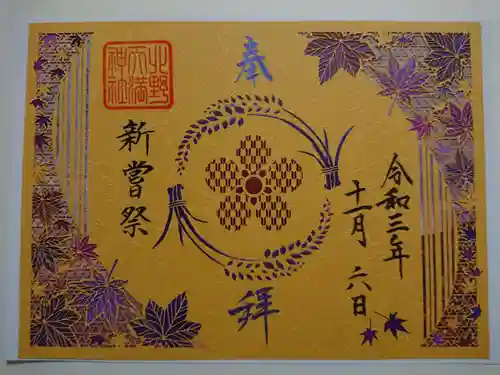 奉拝
令和三年
十一月六日
北野
天満
神社
新嘗祭